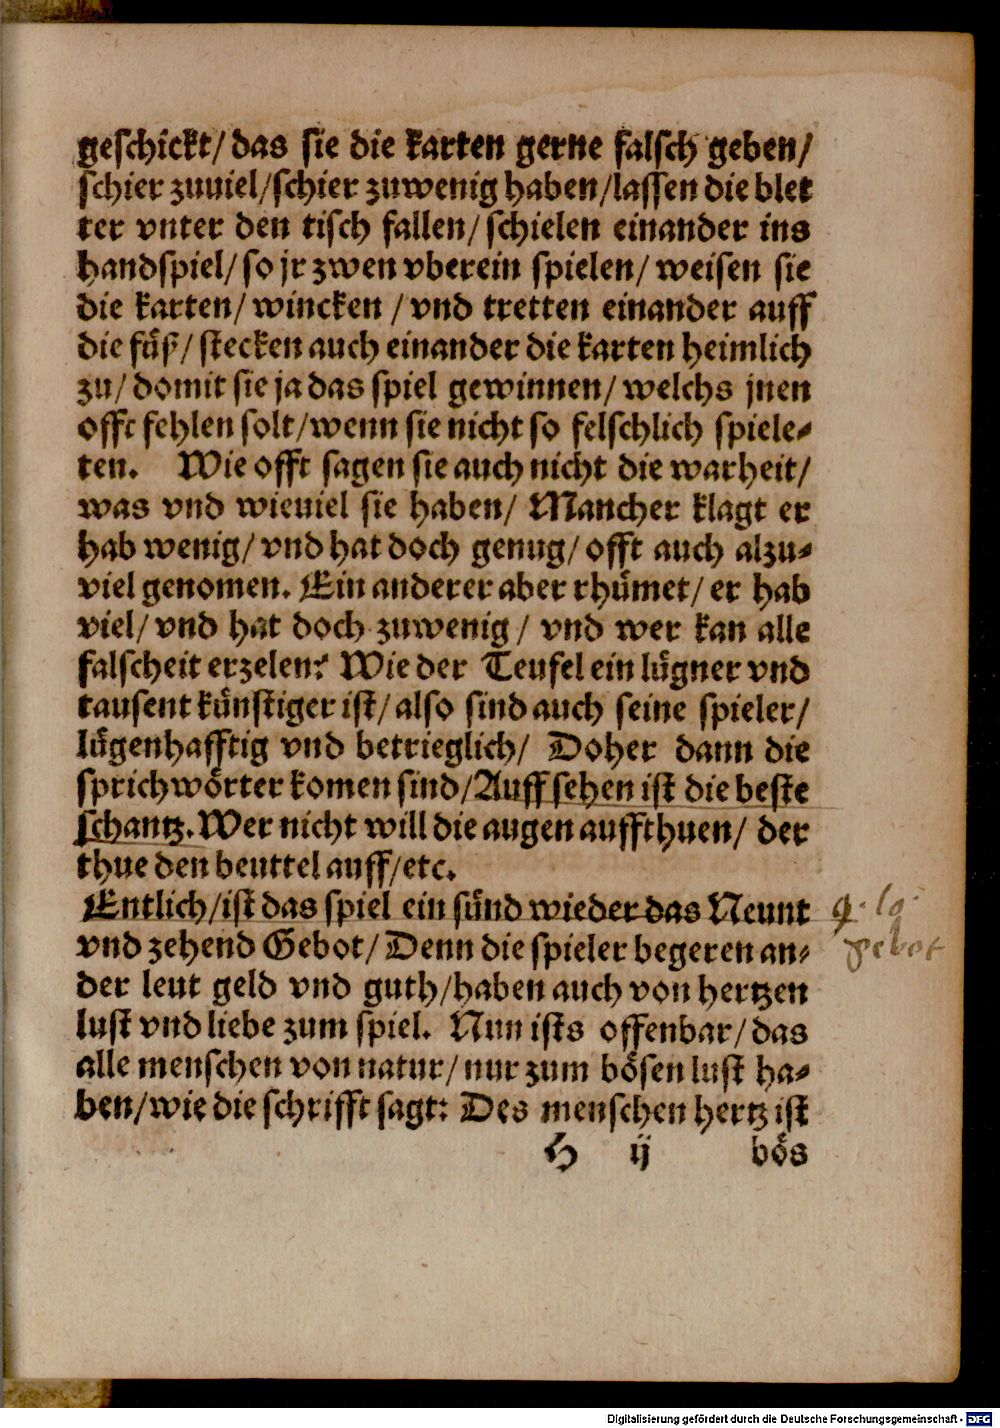 geschickt/ das sie die karten gerne falsch geben/
schier zuuiel/schier zuwenig haben/lassen die blet
ter vnter den tisch fallen/ schielen einander ins
handspiel/ so jr zwen vberein spielen/ weisen sie
die karten/ wincken / vnd tretten einander auff
die fuͤß/ stecken auch einander die karten heimlich
zu/ domit sie ja das spiel gewinnen/ welchs jnen
offt fehlen solt/wenn sie nicht so felschlich spiele-
ten. Wie offt sagen sie auch nicht die warheit/
was vnd wieuiel sie haben/ Mancher klagt er
hab wenig/ vnd hat doch genug/ offt auch alzu-
viel genomen. Ein anderer aber rhuͤmet/ er hab
viel/ vnd hat doch zuwenig / vnd wer kan alle
falscheit erzelen? Wie der Teufel ein luͤgner vnd
tausent kuͤnstiger ist/ also sind auch seine spieler/
luͤgenhafftig vnd betrieglich/ Doher dann die
sprichwoͤrter komen sind/Auff sehen ist die beste
schantz. Wer nicht will die augen auffthuen/ der
thue den beuttel auff/etc.
Entlich/ist das spiel ein suͤnd wieder das Neunt
vnd zehend Gebot/ Denn die spieler begeren an-
der leut geld vnd guth/haben auch von hertzen
lust vnd liebe zum spiel. Nun ists offenbar/ das
alle menschen von natur/ nur zum boͤsen lust ha-
ben/wie die schrifft sagt: Des menschen hertz ist
H ij boͤs
9. 10.
gebot
Digitalisierung gefördert durch die Deutsche Forschungsgemeinschaft - DFG